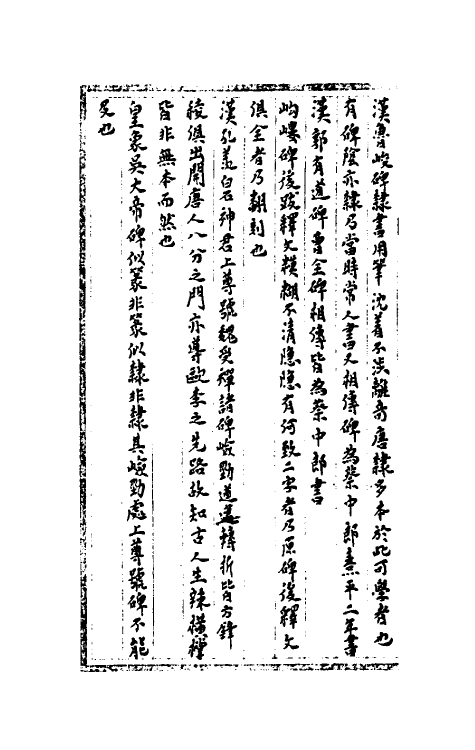 漢魯峻碑隸書用筆沈着不浅離奇唐隸多本於此可學者也
有碑陰亦隸乃當時常人書又相傳碑為蔡中郎熹平二年書
漢郭有道碑魯全碑相傳皆為蔡中郎書
岣嶁碑後跋釋文模糊不清隐隐有何致二字者乃原碑後釋文
俱全者乃翻刻也
漢孔羡白石神君上尊號魏受禪諸碑峻勁遒邁轉折皆方鋒
稜俱出開唐人八分之門亦導歐李之先路故知古人生辣橫
皆非無本而然也
皇象吳大帝碑似篆非篆似隸非隸其峻勁處上尊號碑不能
及也